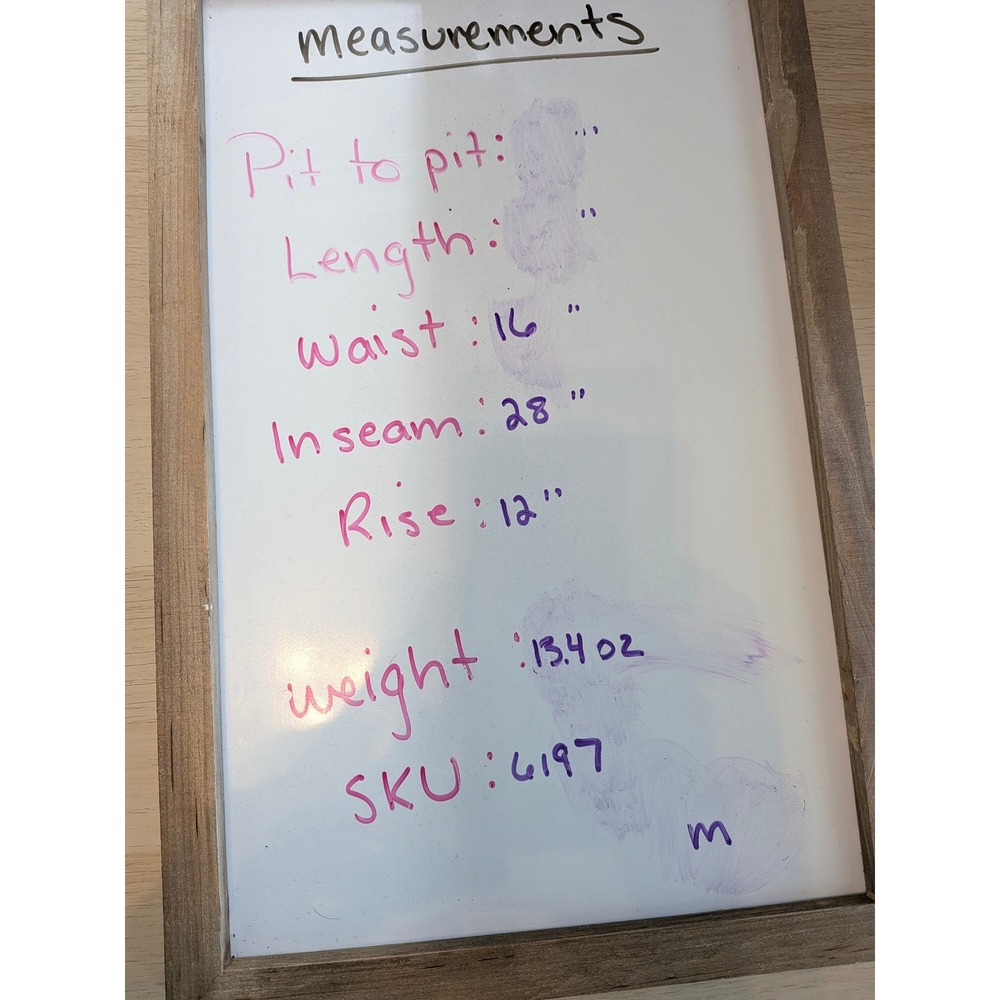 measurements
Pit to pit: "
Length: "
Waist: 16 "
Inseam: 28 "
Rise: 12"
weight: 13.4 oz
SKU: 6197
m